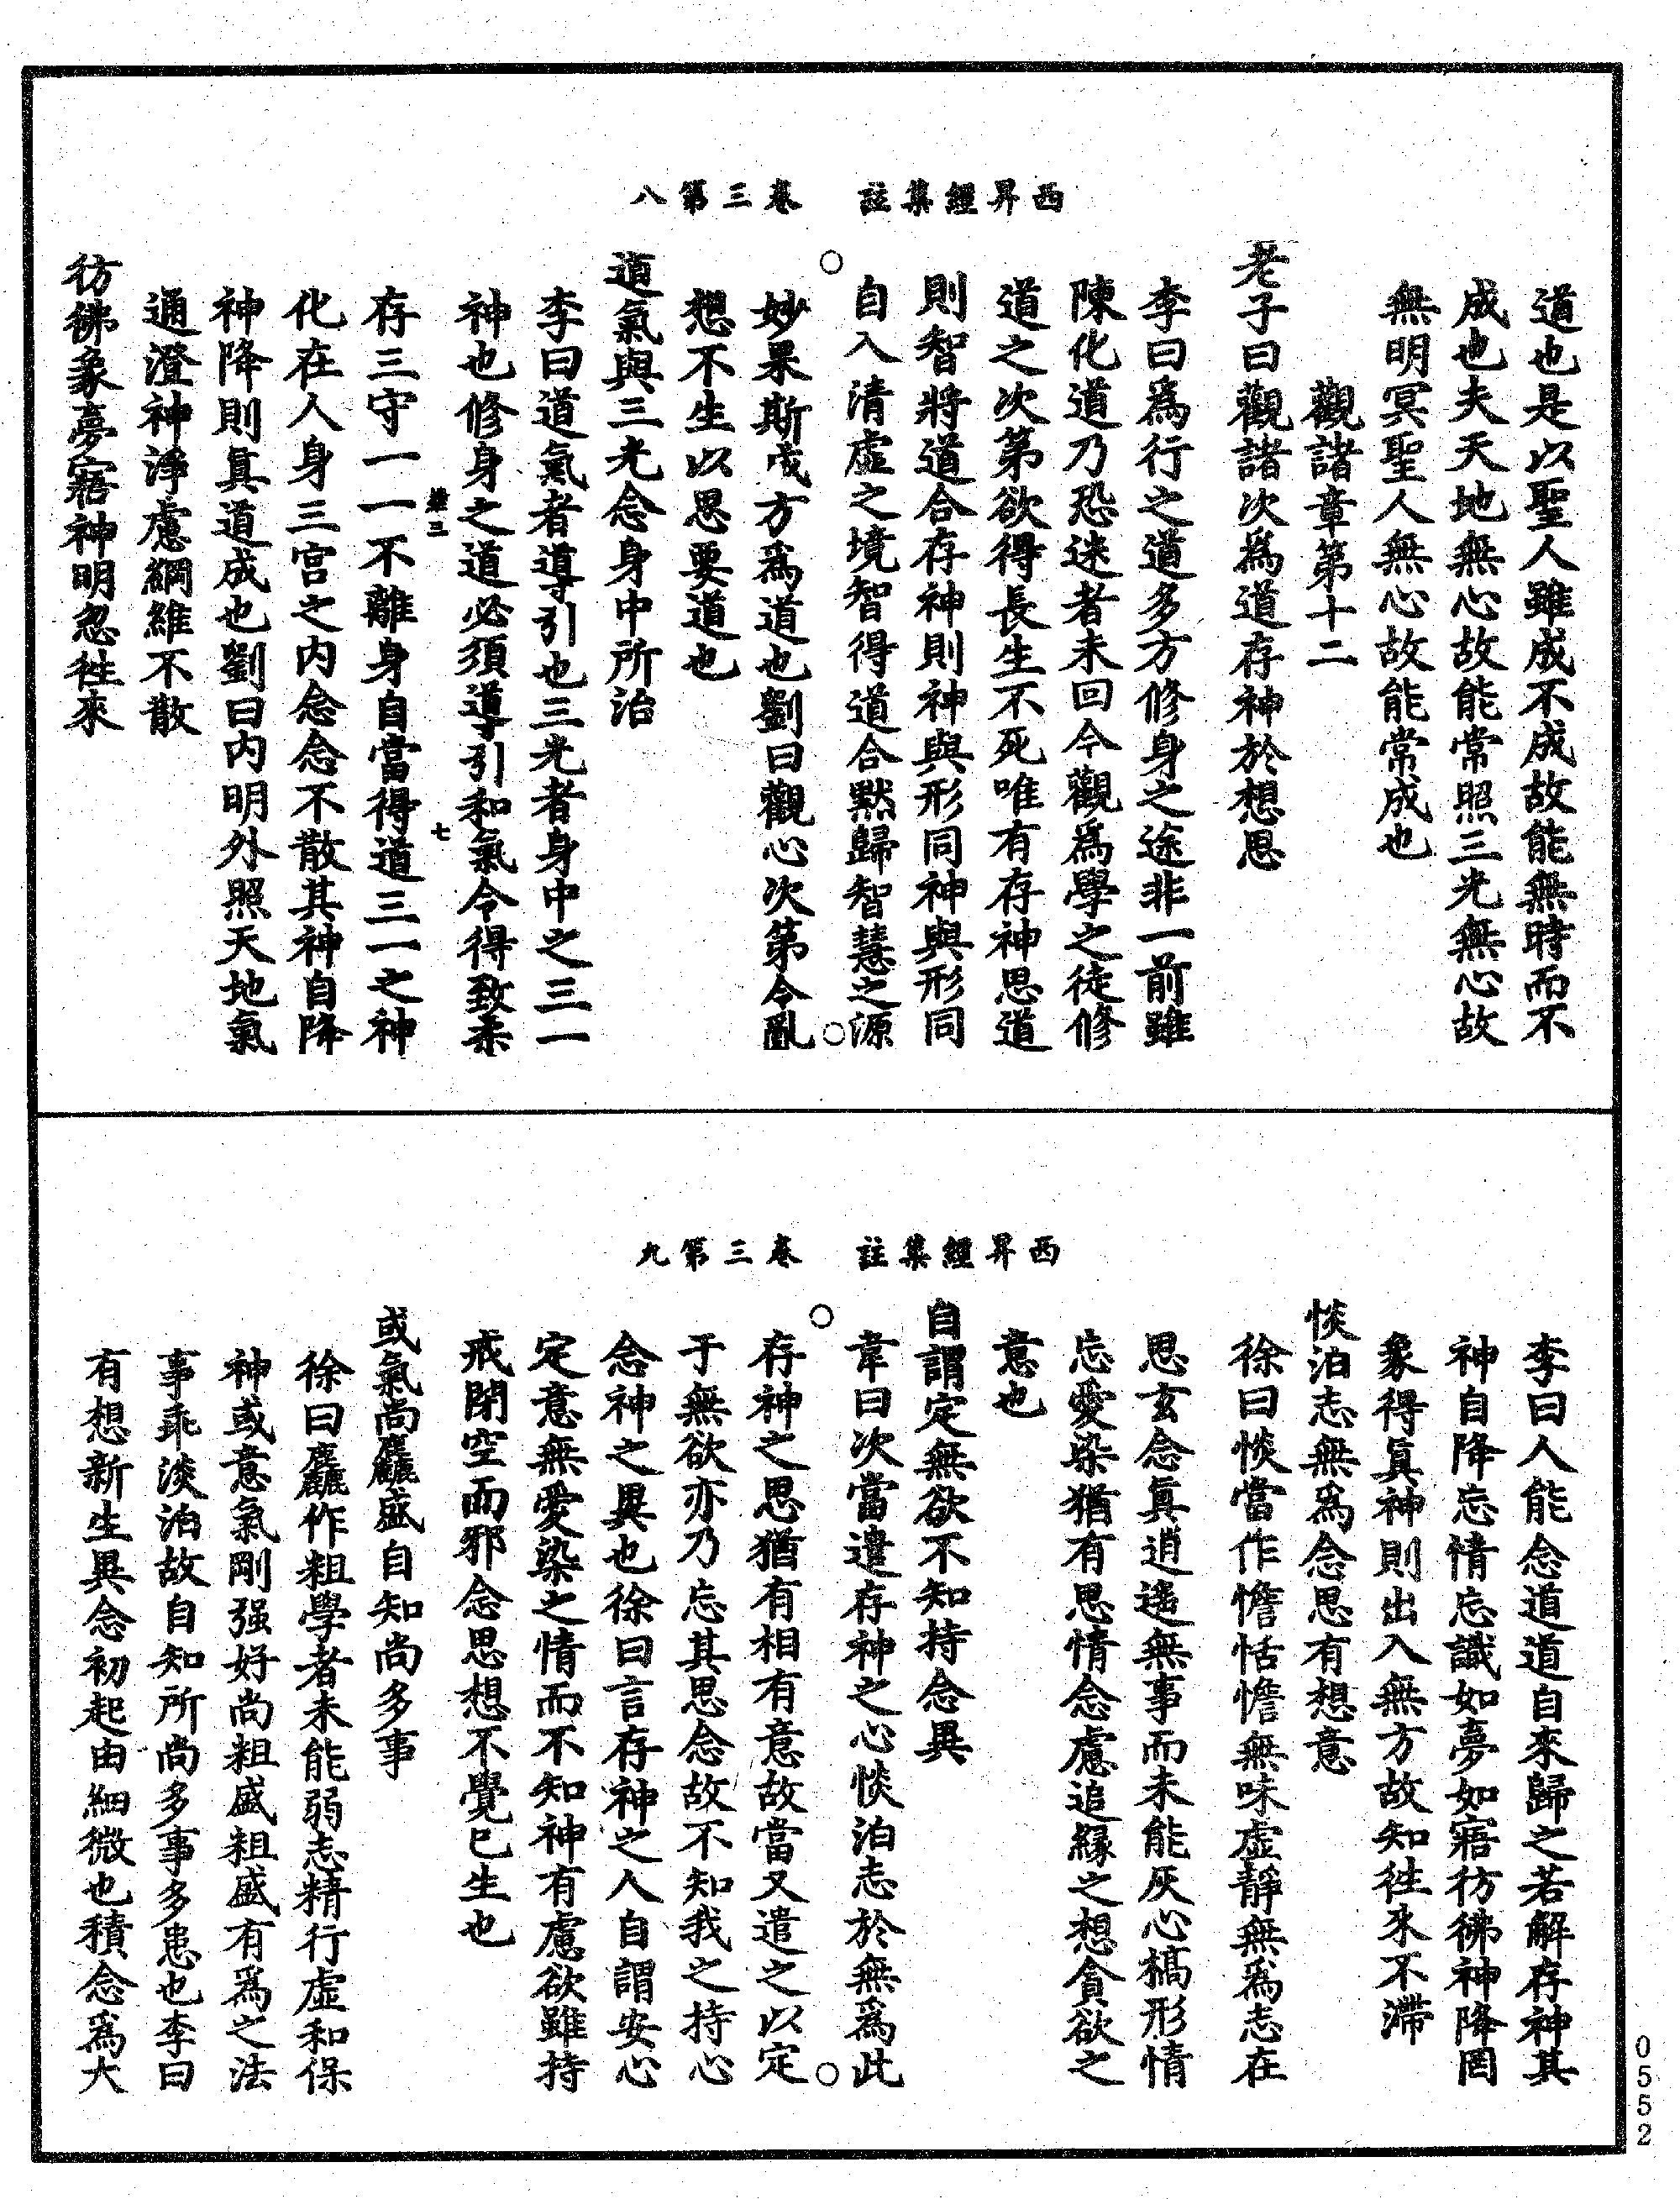 西昇經集註　卷三第八
道也是以聖人雖成不成故能無時而不
成也夫天地無心故能常照三光無心故
無明冥聖人無心故能常成也
觀諸章第十二
老子曰觀諸次為道存神於想思
李曰為行之道多方修身之途非一前雖
陳化道乃恐迷者未回今觀為學之徒修
道之次第欲得長生不死唯有存神思道
則智將道合存神則神與形同神與形同
自入清虛之境智得道合默歸智慧之源
妙果斯成方為道也劉曰觀心次第令亂
想不生以思要道也
道氣與三光念身中所治
李曰道氣者導引也三光者身中之三一
神也修身之道必須導引和氣令得致柔
三　七
存三守一一不離身自當得道三一之神
化在人身三宮之內念念不散其神自降
神降則真道成也劉曰內明外照天地氣
通澄神淨慮綱維不散
彷彿象夢寤神明忽往來
西昇經集註　卷三第九
李曰人能念道道自來歸之若解存神其
神自降忘情忘識如夢如寤彷彿神降罔
象得真神則出入無方故知往來不滯
惔泊志無為念思有想意
徐曰惔當作憺恬憺無味虛靜無為志在
思玄念真逍遙無事而未能灰心槁形情
忘愛染猶有思情念慮追緣之想貪欲之
意也
自謂定無欲不知持念異
韋曰次當遣存神之心惔泊志於無為此
存神之思猶有相有意故當又遣之以定
于無欲亦乃忘其思念故不知我之持心
念神之異也徐曰言存神之人自謂安心
定意無愛染之情而不知神有慮欲雖持
戒閉空而邪念思想不覺已生也
或氣尚麤盛自知尚多事
徐曰麤作粗學者未能弱志精行虛和保
神或意氣剛强好尚粗盛粗盛有為之法
事乖淡泊故自知所尚多事多患也李曰
有想新生異念初起由細微也積念為大
0552